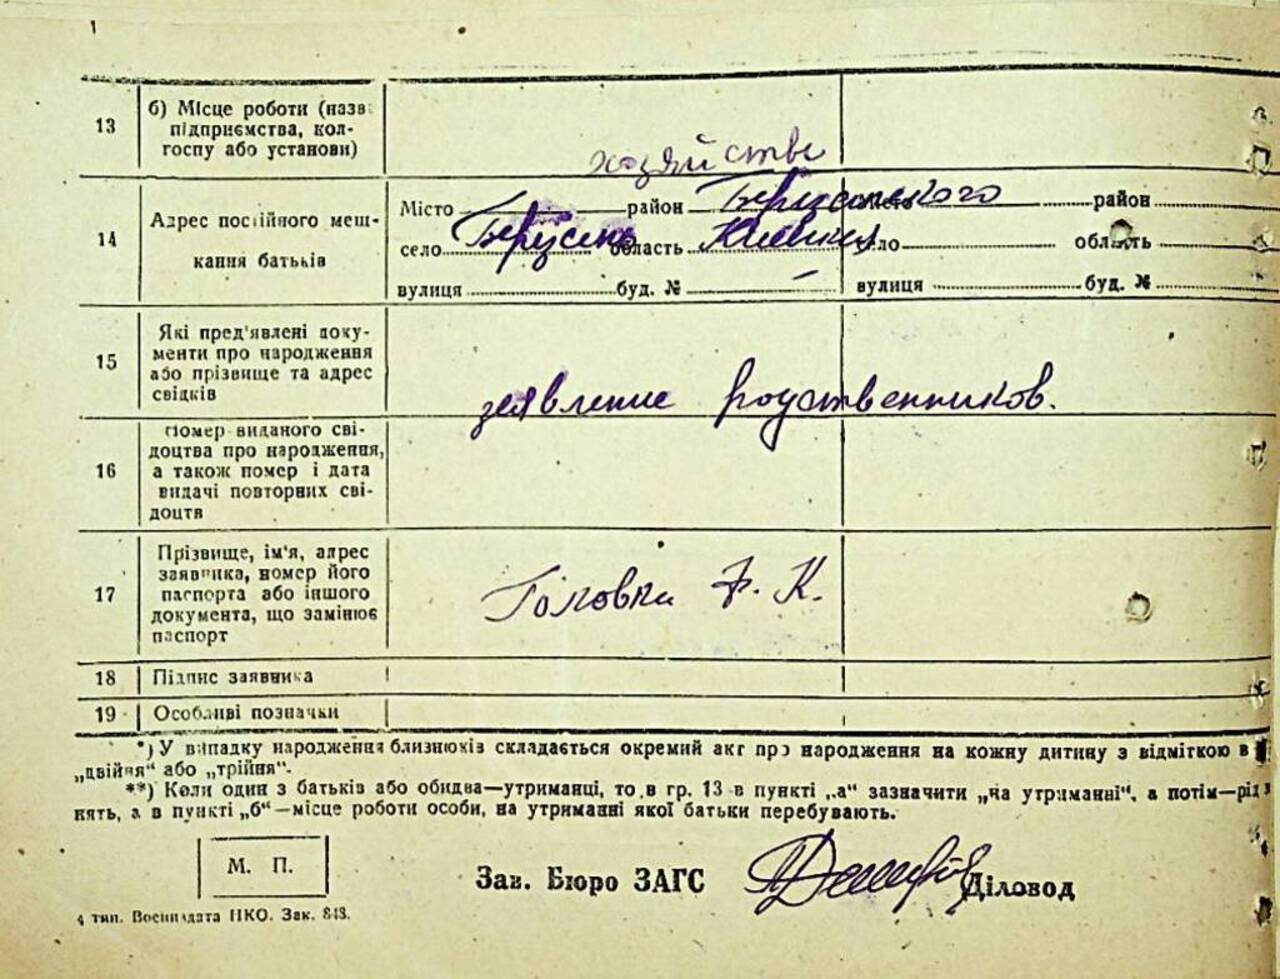 1
13 б) Місце роботи (назв
підприємства, кол-
госпу або установи)
хозяйстве
14 Адрес постійного меш-
кання батьків
Місто район Місто район
село область Киевская село область
вулиця буд. № – вулиця буд. №
15 Які пред'явлені доку-
менти про народження
або прізвище та адрес
свідків
заявление родственников.
16 Номер виданого сві-
доцтва про народження,
а також номер і дата
видачі повторних сві-
доцтв
17 Прізвище, ім'я, адрес
заявника, номер його
паспорта або іншого
документа, що замінює
паспорт
Головки Ф. К.
18 Підпис заявника
19 Особливі позначки
*) У випадку народження близнюків складається окремий акт про народження на кожну дитину з відміткою в
„двійня“ або „трійня“.
**) Коли один з батьків або обидва—утриманці, то в гр. 13 в пункті „а“ зазначити „на утриманні“, а потім—рід з
нять, а в пункті „б“—місце роботи особи, на утриманні якої батьки перебувають.
М. П.
Зав. Бюро ЗАГС Діловод
4 тип. Воениздата НКО. Зак. 848.